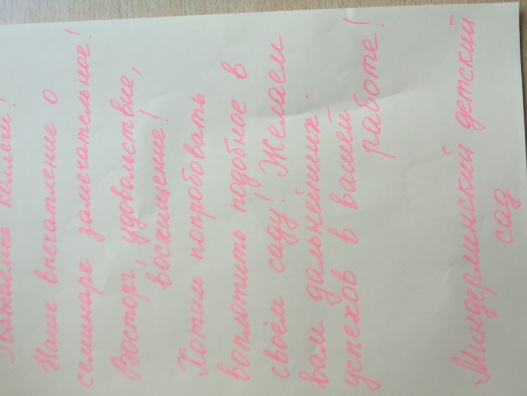 Уважаемые коллеги!
Наше впечатление о
семинаре замечательное!
Восторг, удовольствие,
восхищение!
Хотим попробовать
воплотить подобное в
своём саду! Желаем
вам дальнейших
успехов в вашей
работе!
Миндерлинский детский
сад